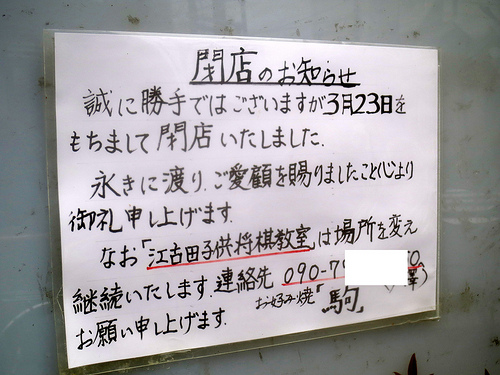 閉店のお知らせ
誠に勝手ではございますが3月23日を
もちまして閉店いたしました.
永きに渡り.ご愛顧を賜りましたこと心より
御礼申し上げます.
なお「江古田子供将棋教室」は場所を変え
継続いたします.連絡先 090-7
お願い申し上げます. お好み焼「駒」